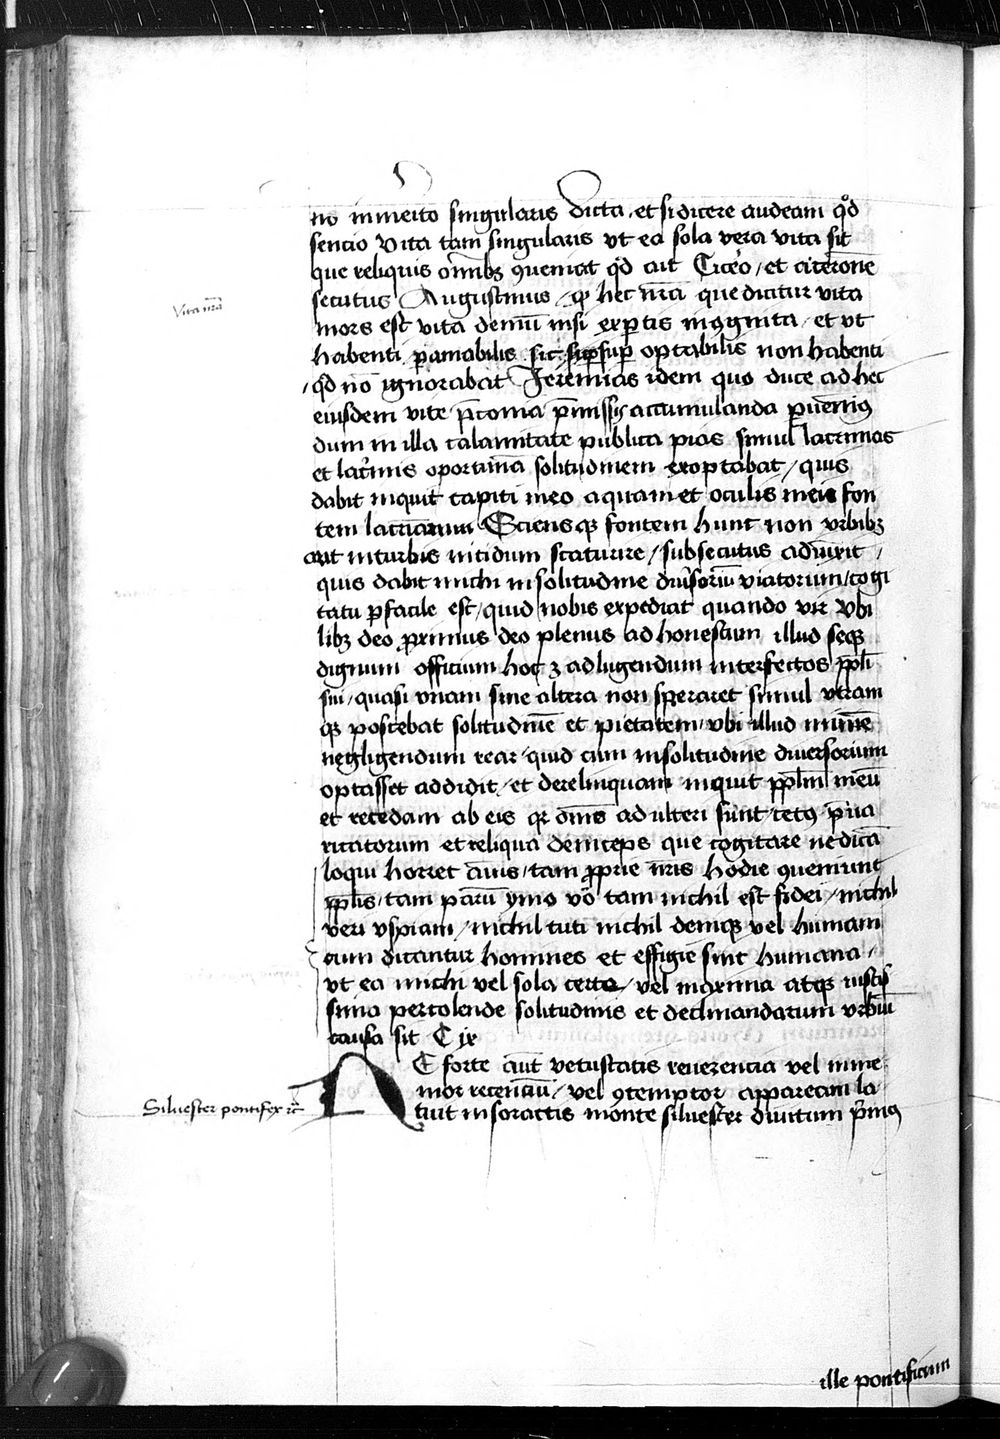 no inmeito singularis dicta, et si dicere audeam qd̄
sencio Vita tam singularis vt ea sola vera vita sit
que reliquis om̄ibꝫ ꝯueniat qd̄ ait Ciceo / et ciceronē
secutus Augustinus, ꝙ hec nr̄a que dicitur vita
Vita nr̄a
mors est vita demū nisi exꝑtis incognita, et vt
habenti ꝑamabilis sic suꝑ optabilis non habenti
, qd̄ nō ignorabat Jeremias idem quo duce ad hec
eiusdem vite p̄conia p̄missis accumulanda ꝑuenimꝰ
dum in illa calamitate publica pias simul lacrimas
et lac̄mis oportunā solitudinem exoptabat / quis
dabit inquit capiti meo aquam et oculis meis fon
tem lacrimarum Sciensqꝫ fontem hunc non vrbibꝫ
aut inturbis nitidum scaturire / subsecutus adiūxit /
quis dabit michi in solitudine diu̓soriū viatorum / cogi
tatu ꝑfacile est, quid nobis expediat quando vir vbi
libꝫ deo ꝓximus deo plenus ad honestum illud seqꝫ
dignum officium hoc ꝫ ad lugendum interfectos ppl̄i
sui, quasi vnam sine altera non speraret simul vtram
qꝫ poscebat solitudinē et pietatem, vbi illud minīe
negligendum rear, quid cum insolitudine diuersorium
optasset addidit, et derelinquam inquit ppl̄m meū
et recedam ab eis qr om̄s adulteri sūnt, cetꝰ p̄ua
ricatorum et reliqua deinceps que cogitare ne dicā
loqui horret aīus, tam ꝓprie nr̄is hodie ꝯueniunt
ppl̄is, tam parū ymo vo̓ tam nichil est fidei / nichil
veri vspiam, nichil tuti nichil deniqꝫ vel humani
cum dicantur homines et effigie sint humana,
vt ea michi vel sola certe, vel maxima atqꝫ iustis
sima percolende solitudinis et declinandarum vrbiū
causa sit C ix
NE forte aūt vetustatis reuerencia vel inme
mor recenciū, vel ꝯtemptor appaream la
Siluester pontifex rc̄
tuit insoractis monte siluester diuitum p̄mꝰ
ille pontificum